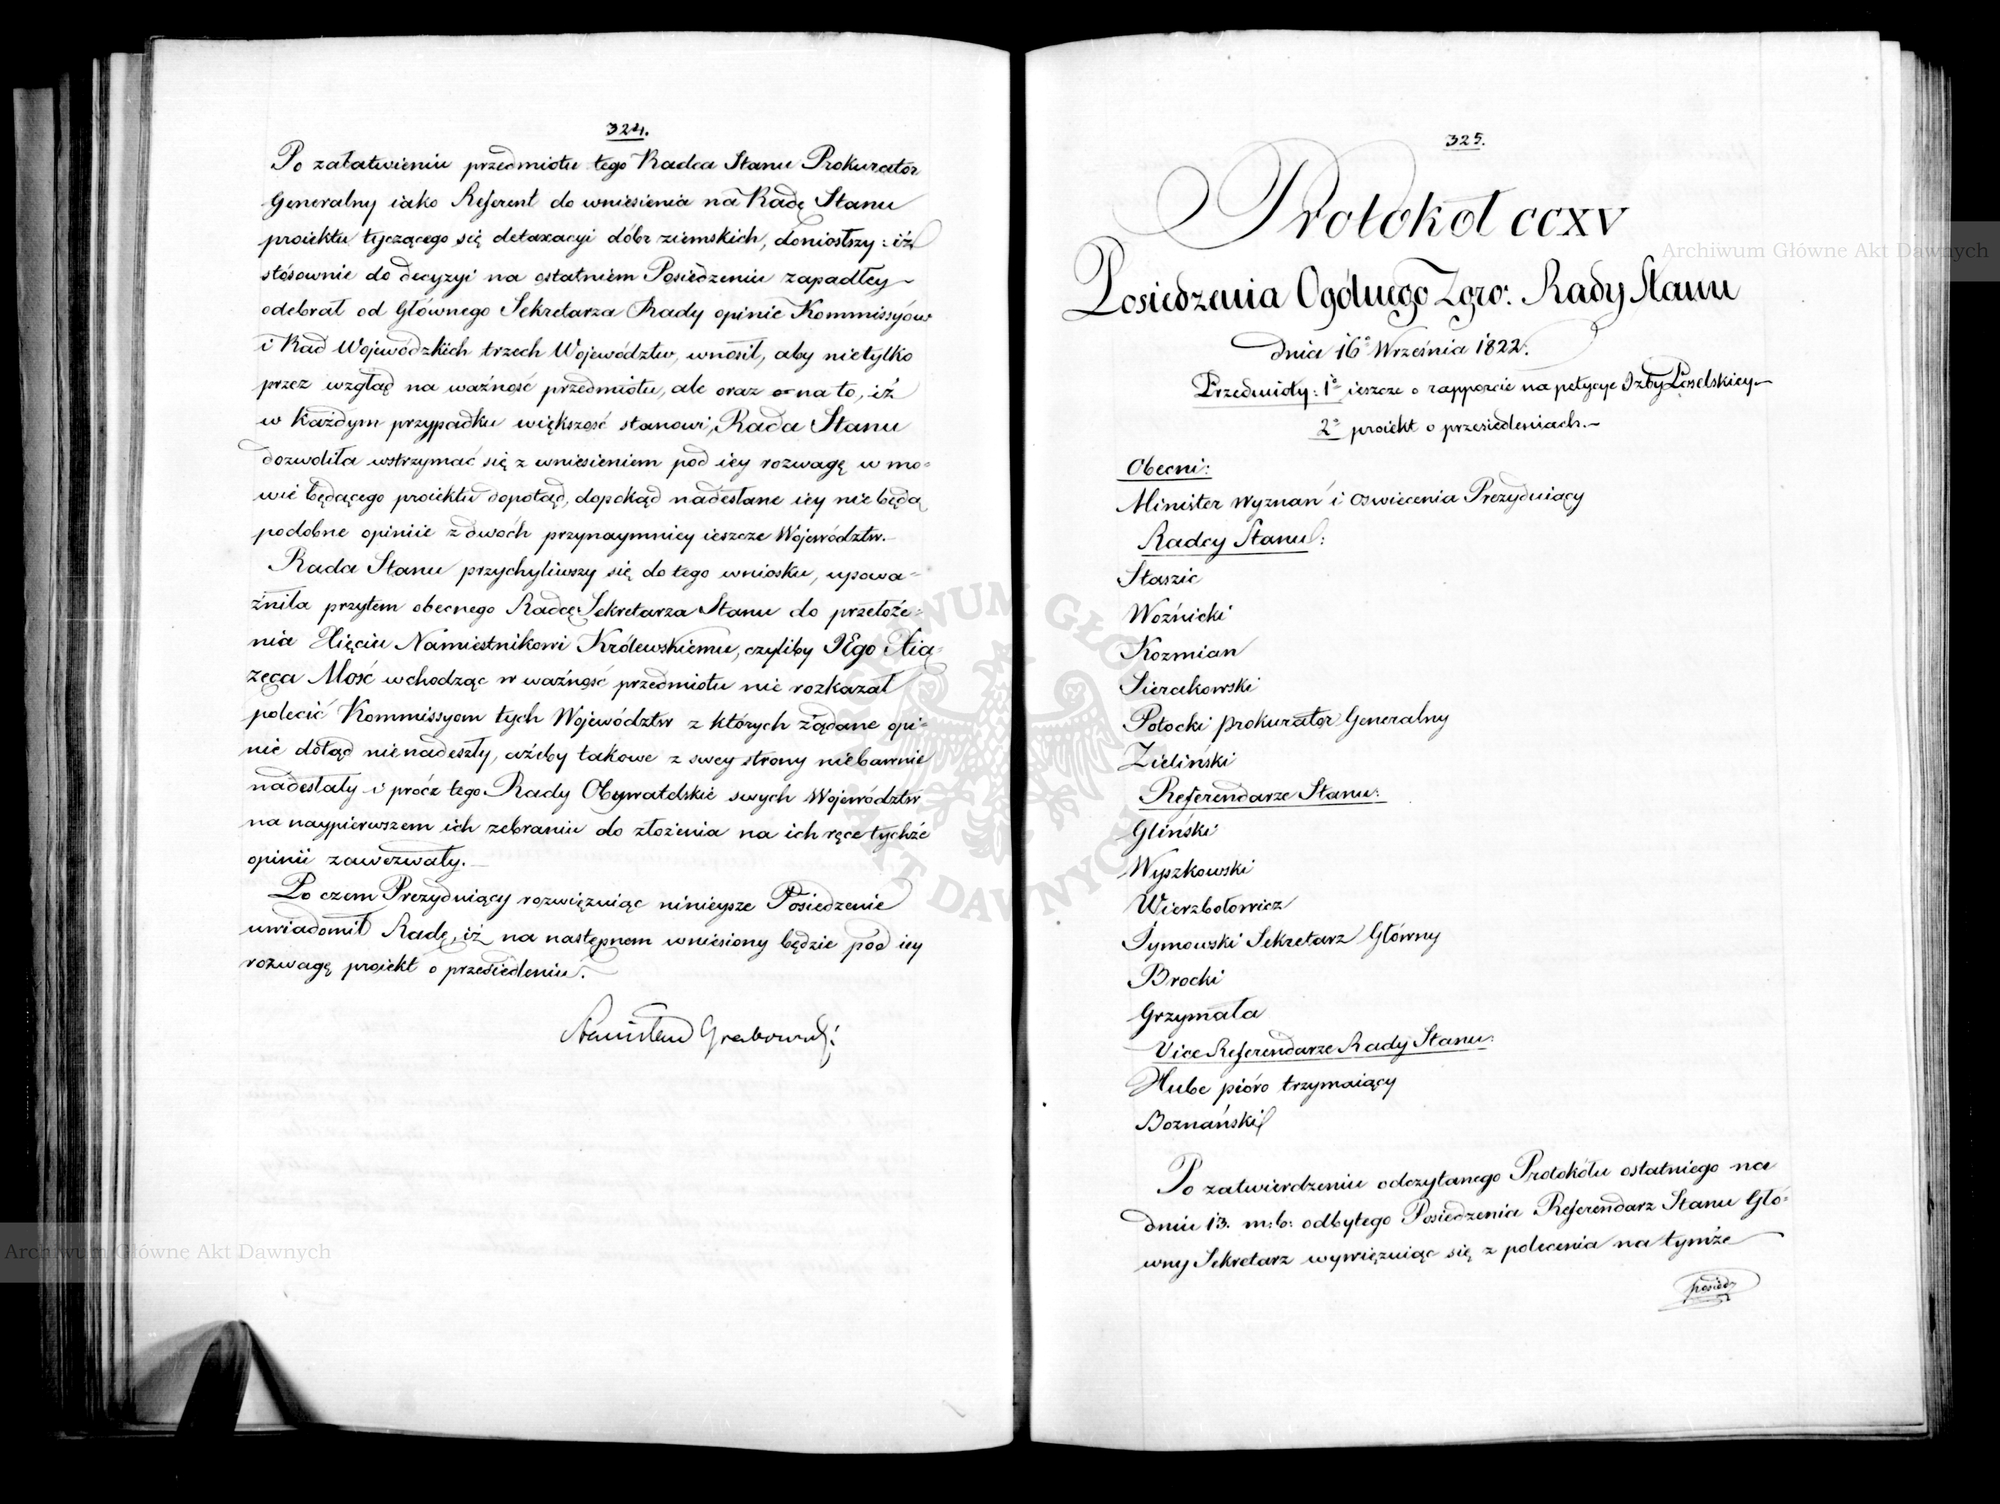 324.
Po załatwieniu przedmiotu tego Radca Stanu Prokurator
Generalny iako Referent do wniesienia na Radę Stanu
proiektu tyczącego się detaxacyi dóbr ziemskich, doniosłszy: iż
stósownie do decyzyi na ostatniem Posiedzeniu zapadłey
odebrał od Głównego Sekretarza Rady opinie Kommissyów
i Rad Wojewódzkich trzech Województw, wnosił, aby nietylko
przez wzgląd na ważność przedmiotu, ale oraz na to, iż
w każdym przypadku większość stanowi, Rada Stanu
dozwoliła wstrzymać się z wniesieniem pod iey rozwagę w mo=
wie będącego proiektu dopotąd, dopokąd nadesłane iey nie będą
podobne opiniie z dwóch przynaymniey ieszcze Województw.
Rada Stanu przychyliwszy się do tego wniosku, upowa=
żniła przytem obecnego Radcę Sekretarza Stanu do przełoże=
nia Xięciu Namiestnikowi Królewskiemu, czyliby JEgo Xią=
żęca Mość wchodząc w ważność przedmiotu nie rozkazał
polecić Kommissyom tych Województw z których żądane opi=
nie dotąd nienadeszły, ażeby takowe z swey strony niebawnie
nadesłały i prócz tego Rady Obywatelskie swych Województw
na naypierwszem ich zebraniu do złożenia na ich ręce tychże
opinii zawezwały.
Po czem Prezyduiący rozwięzuiąc ninieysze Posiedzenie
uwiadomił Radę, iż na następnem wniesiony będzie pod iey
rozwagę proiekt o przesiedleniu.
Stanisław Grabowski
325.
Protokół CCXV
Posiedzenia Ogólnego Zgro: Rady Stanu
dnia 16º Września 1822.
Przedmioty: 1º ieszcze o rapporcie na petycye Izby Poselskiey
2º proiekt o przesiedleniach.
Obecni:
Minister Wyznań i Oświecenia Prezyduiący
Radcy Stanu:
Staszic
Woźnicki
Kozmian
Sierakowski
Potocki Prokurator Generalny
Zieliński
Referendarze Stanu:
Gliński
Wyszkowski
Wierzbołowicz
Tymowski Sekretarz Główny
Brocki
Grzymała
Vice Referendarze Rady Stanu:
Hube pióro trzymaiący
Boznański
Po zatwierdzeniu odczytanego Protokółu ostatniego na
dniu 13. m: b: odbytego Posiedzenia Referendarz Stanu Głó=
wny Sekretarz wywięzuiąc się z polecenia na tymże
posiedz
Archiwum Główne Akt Dawnych
Archiwum Główne Akt Dawnych
ARCHIWUM GŁÓWNE AKT DAWNYCH